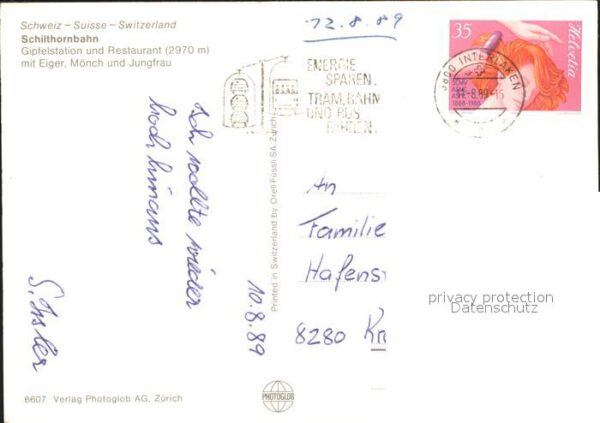 Schweiz – Suisse – Switzerland
Schilthornbahn
Gipfelstation und Restaurant (2970 m)
mit Eiger, Mönch und Jungfrau
12.8.89
35
Helvetia
3800 INTERLAKEN
-8.89-15
1888-1988
ENERGIE
SPAREN.
TRAM, BAHN
UND BUS
FAHREN.
Ich wollte wieder
hoch hinaus
10.8.89
S. Isler
Printed in Switzerland by Orell Füssli SA, Zürich
An
Familie
Hafens
8280 Kr
privacy protection
Datenschutz
PHOTOGLOB
6607 Verlag Photoglob AG, Zürich